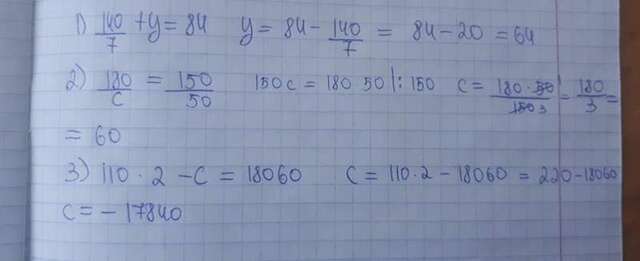 1) 140/7 + y = 84 y = 84 - 140/7 = 84 - 20 = 64
2) 180/c = 150/50 150c = 180 50 |: 150 c = 180 · 50/150 3 = 180/3 =
= 60
3) 110 · 2 - c = 18060 c = 110 · 2 - 18060 = 220 - 18060
c = - 17840